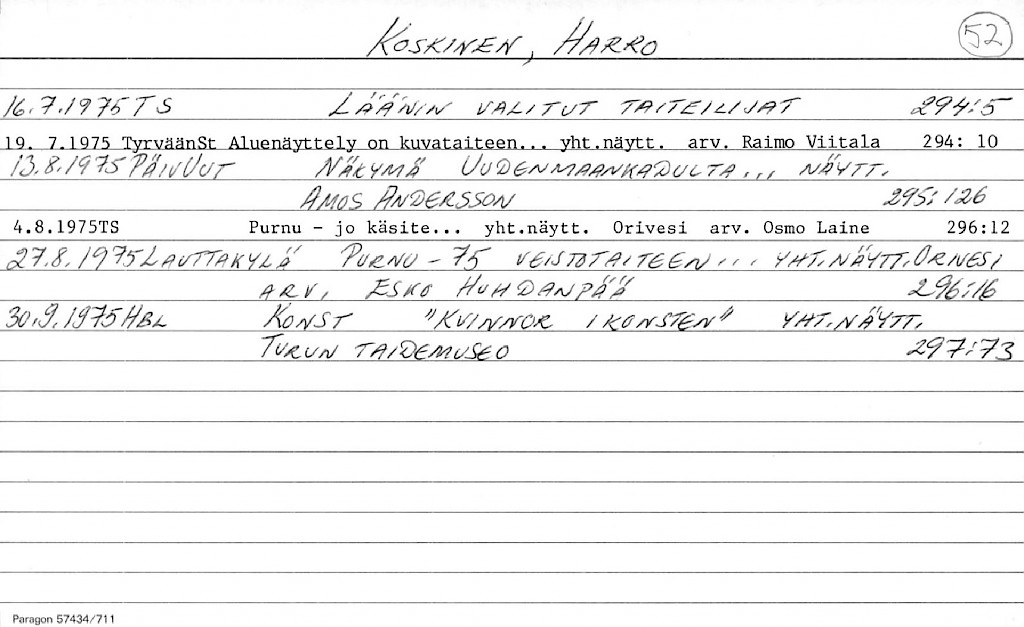 KOSKINEN, HARRO 52
16.7.1975 TS LÄÄNIN VALITUT TAITEILIJAT 294:5
19. 7.1975 TyrväänSt Aluenäyttely on kuvataiteen... yht.näytt. arv. Raimo Viitala 294: 10
13.8.1975 PÄIVUUT NÄKYMÄ UUDENMAANKADULTA... NÄYTT.
AMOS ANDERSSON 295:126
4.8.1975TS Purnu - jo käsite... yht.näytt. Orivesi arv. Osmo Laine 296:12
27.8.1975 LAUTTAKYLÄ PURNU-75 VEISTOTAITEEN... YHT.NÄYTT. ORNESI
ARV. ESKO HUHDANPÄÄ 296:16
30.9.1975 HBL KONST "KVINNOR I KONSTEN" YHT.NÄYTT.
TURUN TAIDEMUSEO 297:73
Paragon 57434/711